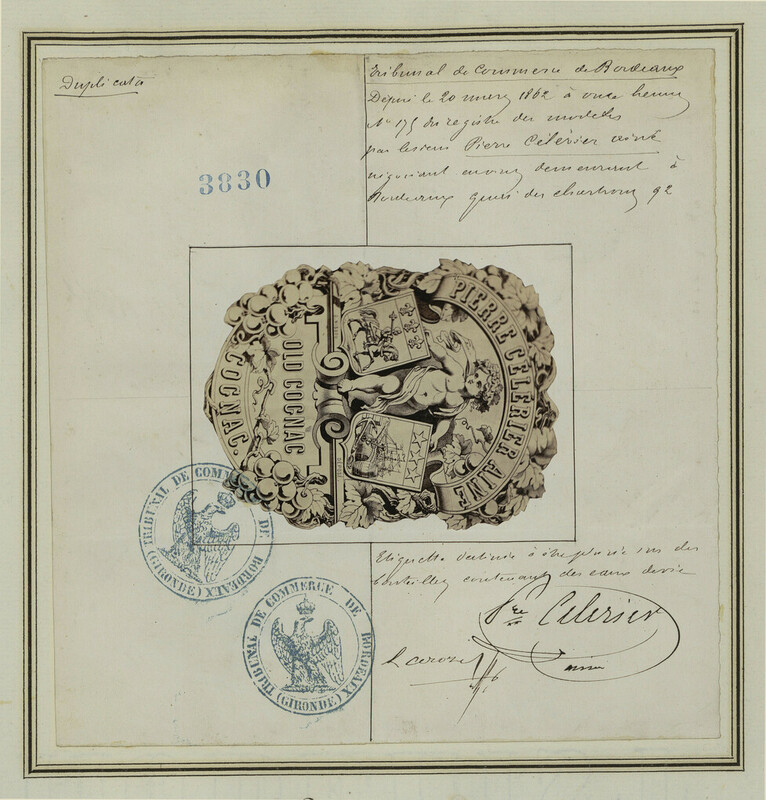 Duplicata
3830
Tribunal de Commerce de Bordeaux
Dépui le 20 mars 1862 à onze heures
No 175 du registre des modeles
par le sieur Pierre Célérier ainé
négociant demeurant à
Bordeaux quai des chartrons 92
PIERRE CÉLÉRIER AINÉ
OLD COGNAC
COGNAC.
TRIBUNAL DE COMMERCE DE BORDEAUX (GIRONDE)
TRIBUNAL DE COMMERCE DE BORDEAUX (GIRONDE)
Etiquette destinée à être placée sur des
bouteilles contenant des eaux de vie
Pre Célérier
ainé